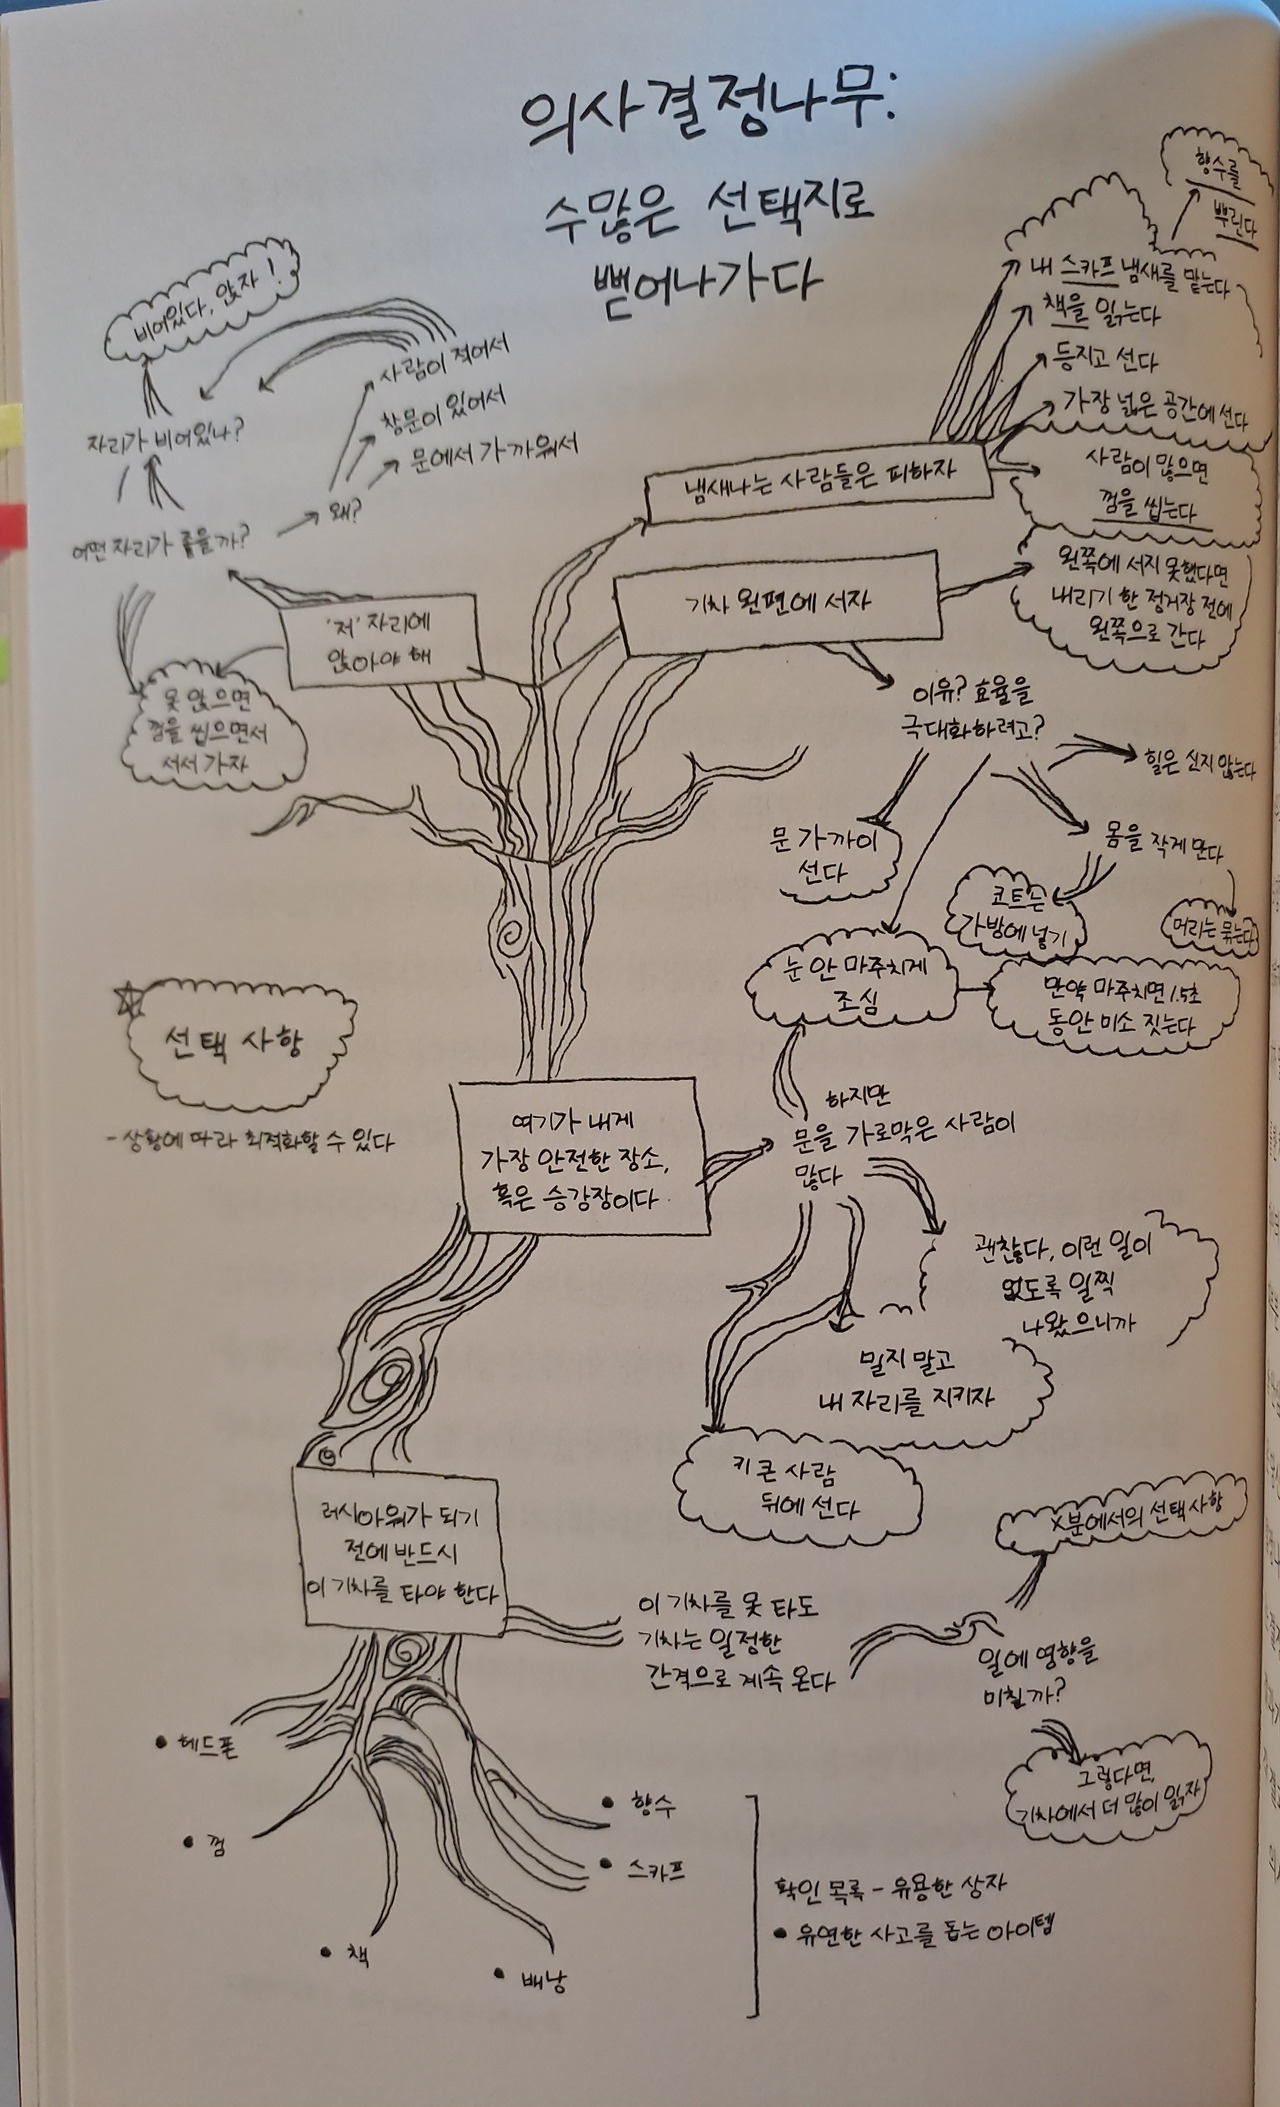 의사결정나무:
수많은 선택지로
뻗어나가다
향수를
뿌린다
내 스카프 냄새를 맡는다
책을 읽는다
등지고 선다
가장 넓은 공간에 선다
사람이 많으면
껌을 씹는다
냄새나는 사람들은 피하자
비어있다, 앉자!
사람이 적어서
창문이 있어서
문에서 가까워서
자리가 비어있나?
왜?
어떤 자리가 좋을까?
'저' 자리에
앉아야 해
못 앉으면
껌을 씹으면서
서서 가자
기차 왼편에 서자
왼쪽에 서지 못했다면
내리기 한 정거장 전에
왼쪽으로 간다
이유? 효율을
극대화하려고?
힐은 신지 않는다
문 가까이
선다
몸을 작게 만다
코트는
가방에 넣기
머리는 묶는다
눈 안 마주치게
조심
만약 마주치면 1.5초
동안 미소 짓는다
선택 사항
- 상황에 따라 최적화할 수 있다
여기가 내게
가장 안전한 장소,
혹은 승강장이다
하지만
문을 가로막은 사람이
많다
괜찮다, 이런 일이
없도록 일찍
나왔으니까
밀지 말고
내 자리를 지키자
키 큰 사람
뒤에 선다
러시아워가 되기
전에 반드시
이 기차를 타야 한다
이 기차를 못 타도
기차는 일정한
간격으로 계속 온다
X분에서의 선택사항
일에 영향을
미칠까?
그렇다면,
기차에서 더 많이 읽자
• 헤드폰
• 껌
• 책
• 배낭
• 향수
• 스카프
확인 목록 - 유용한 상자
• 유연한 사고를 돕는 아이템